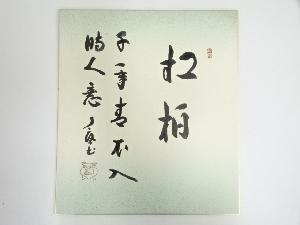 松柏
千年青不入
時人意